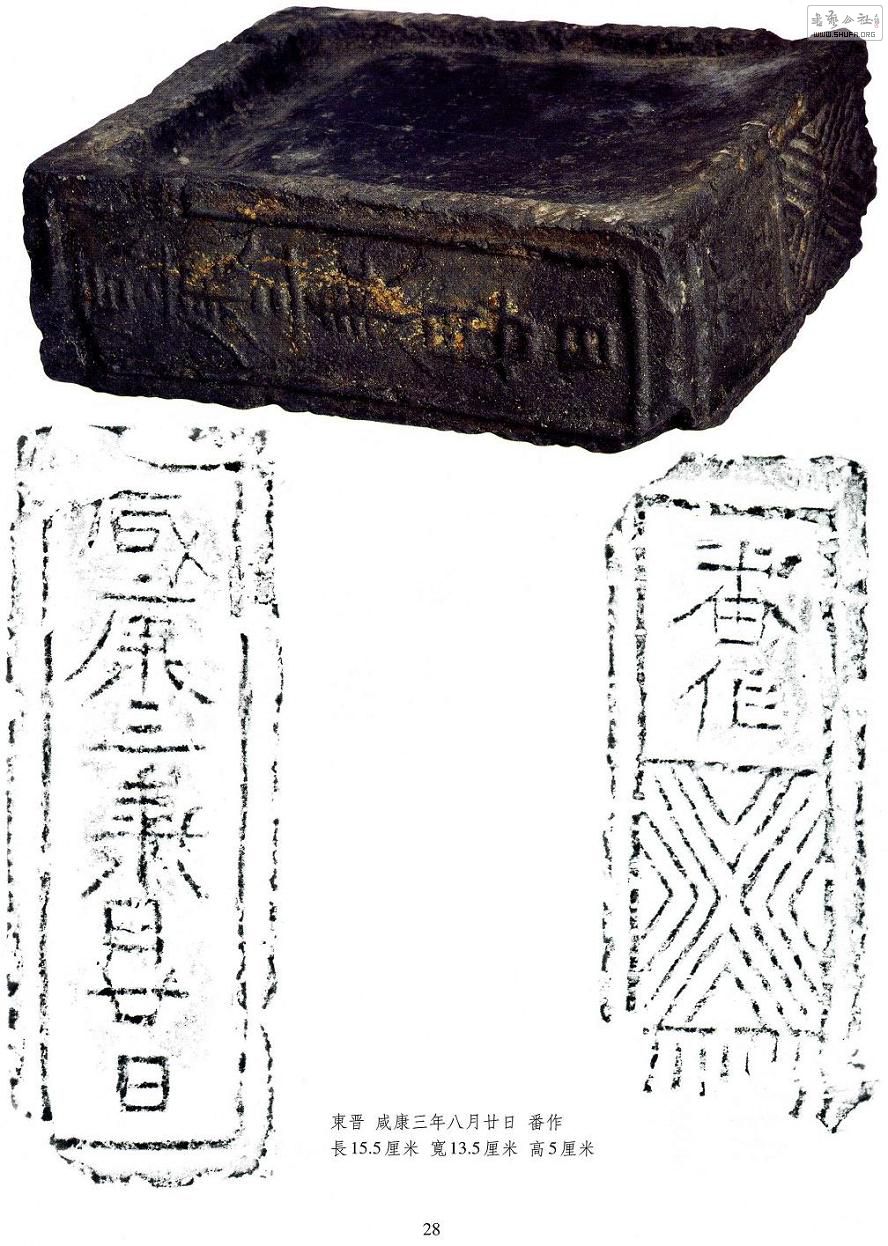 書藝公社
WWW.SHUFA.ORG
咸康三年八月廿日
番作
東晋 咸康三年八月廿日 番作
長15.5厘米 寬13.5厘米 高5厘米
28